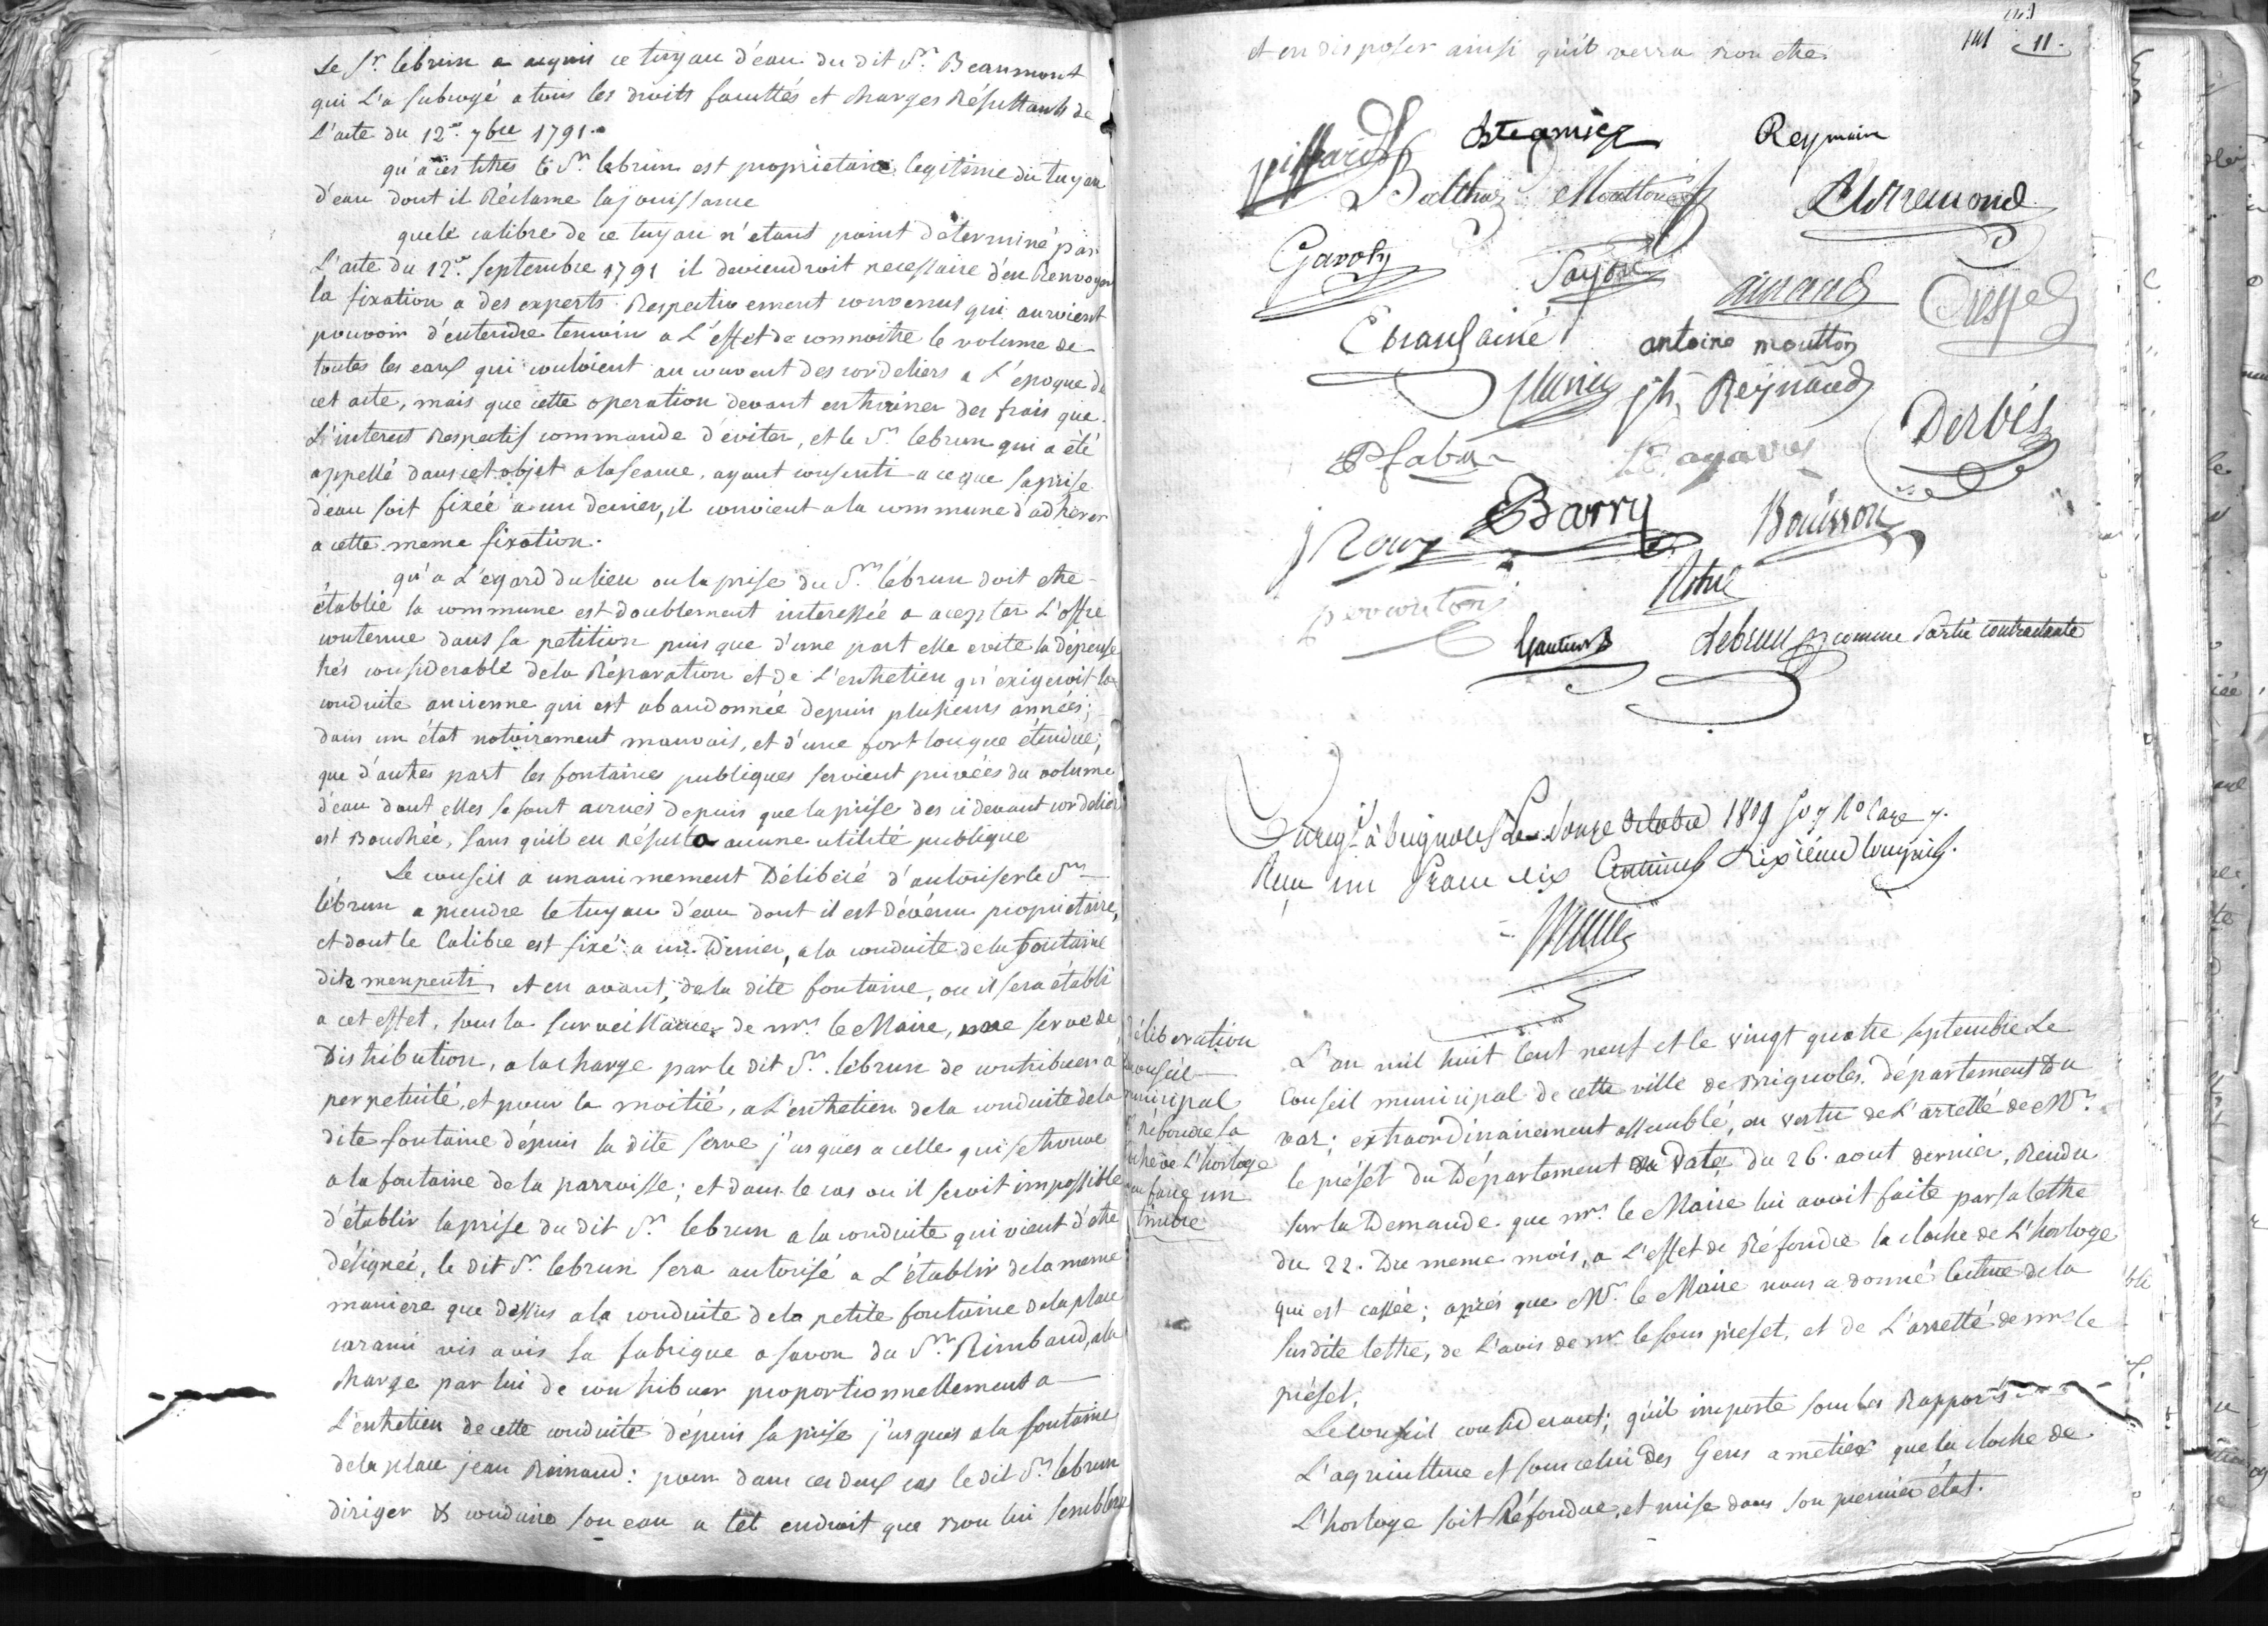 Le Sr. lebrun a acquis ce tuyau d'eau du dit Sr. Beaumont
qui L'a subrogé a tous les droits facultés et charges Résultants de
L'acte du 12e. 7bre 1791.
qu'a ces titres le Sr. lebrun est propriétaire legitime du tuyau
d'eau dont il Réclame la jouissance
que le calibre de ce tuyau n'etant point déterminé par
L'acte du 12e. septembre 1791 il deviendroit necessaire d'en Renvoyer
la fixation a des experts Respectivement convenus qui auroient
pouvoir d'entendre temoin a L'effet de connoitre le volume de
toutes les eaux qui couloient au couvent des cordeliers a L'epoque de
cet acte, mais que cette operation devant entrainer des frais que
L'interest Respectif commande d'éviter, et le Sr. lebrun qui a été
appellé dans cet objet a la seance, ayant consenti a ce que sa prise
d'eau soit fixée a un denier, il convient a la commune d'adherer
a cette meme fixation.
qu'a L'egard du lieu ou la prise du Sr. lebrun doit etre
établie la commune est doublement interessée a accepter L'offre
contenue dans sa petition puis que d'une part elle evite la dépense
trés considerable de la Réparation et de L'entretien qu'éxigeroit la
conduite ancienne qui est abandonnée depuis plusieurs années;
dans un état notoirement mauvais, et d'une fort longue étendue;
que d'autres part les fontaines publiques seroient privées du volume
d'eau dont elles se sont acrues depuis que la prise des ci devant cordeliers
est Bouchée, sans qu'il en Résulta aucune utilité publique
Le conseil a unanimement Délibéré d'autoriser le Sr.
lébrun a prendre le tuyau d'eau dont il est dévenu propriétaire,
et dont le Calibre est fixé a un Denier, a la conduite de la fontaine
dite menpenti, et en avant, de la dite fontaine, ou il sera établi
a cet effet, sous la surveillance de mr. le Maire, une serve de
Distribution, a la charge par le dit Sr. lébrun de contribuer a
perpetuité, et pour la moitié, a L'entretien de la conduite de la
dite fontaine dépuis la dite serve j'usques a celle qui se trouve
a la fontaine de la parroisse; et dans le cas ou il seroit impossible
d'établir la prise du dit Sr. lebrun a la conduite qui vient d'etre
désignée, le dit Sr. lebrun sera autorisé a L'établir de la meme
maniere que dessus a la conduite de la petite fontaine de la place
carami vis avis la fabrique a savon du Sr. Rimbaud, a la
charge par lui de contribuer proportionnellement a
L'entretien de cette conduite dépuis sa prise j'usques a la fontaine
de la place jean Rainaud: pour dans ces deux cas le dit Sr. lebrun
diriger & conduire son eau a tel endroit que bon lui semblera
141 11.
et en disposer ainsi qu'il verra bon etre
piffard Reymain
Balthaz Mouttonet
Garoty arnaud Crespel
antoine moutton
jh. Reynaud
P fabre Derbès
J Roux Barry Bouisson
Gautier Lebrun comme Partie contractante
Enregt. à brignoles Le Douze Octobre 1809 fo 7 Ro Case 7.
Reçu un franc dix Centimes dixième compris.
Déliberation
du conseil
municipal
de réfondre la
cloche de L'horloge
ou faire un
timbre
L'an mil huit Cent neuf et le vingt quatre septembre Le
Conseil municipal de cette ville de Brignoles, département Du
var; extraordinairement assemblé, en vertu de L'arretté de Mr.
le préfet du Département en Date du 26. aout dernier, Rendu
sur la Demande que mr. le Maire lui avoit faite par sa lettre
du 22. Du meme mois, a L'effet de Réfondre la cloche de L'horloge
qui est cassée; aprés que Mr. le Maire nous a donné lecture de la
susdite lettre, de L'avis de mr. le sous préfet, et de L'arretté de mr. le
préfet.
Le conseil considerant; qu'il importe sous les Rapports
L'agriculture et sous celui des Gens a métier que la cloche de
L'horloge soit Réfondue, et mise dans son premier état.